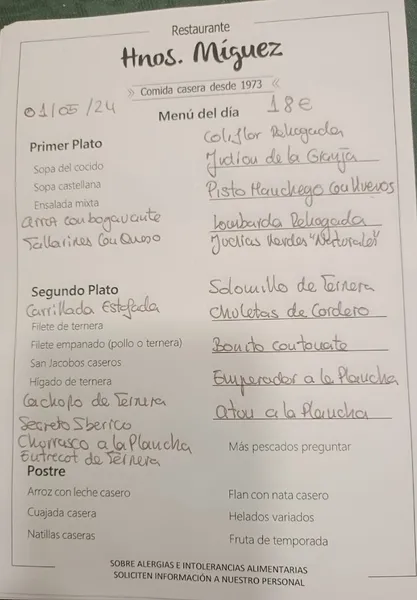 Restaurante
Hnos. Míguez
Comida casera desde 1973
01/05/24
Menú del día 18€
Primer Plato
Sopa del cocido
Sopa castellana
Ensalada mixta
Arroz con bogavante
Tallarines Con Queso
Coliflor Rehogada
Judion de la Granja
Pisto Manchego Con Huevos
Lombarda Rehogada
Judias Verdes "Naturales"
Segundo Plato
Carrillada Estofada
Filete de ternera
Filete empanado (pollo o ternera)
San Jacobos caseros
Hígado de ternera
Cachopo de Ternera
Secreto Iberico
Churrasco a la Plancha
Entrecot de Ternera
Solomillo de Ternera
Chuletas de Cordero
Bonito con tomate
Emperador a la Plancha
Atun a la Plancha
Más pescados preguntar
Postre
Arroz con leche casero
Cuajada casera
Natillas caseras
Flan con nata casero
Helados variados
Fruta de temporada
SOBRE ALERGIAS E INTOLERANCIAS ALIMENTARIAS
SOLICITEN INFORMACIÓN A NUESTRO PERSONAL